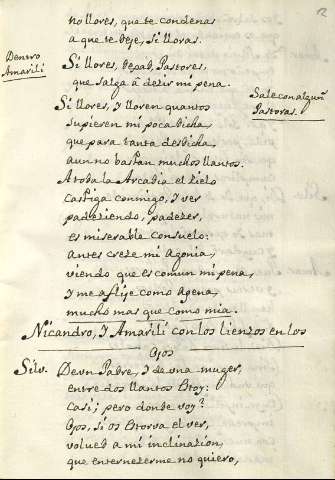 no llores, que te condenas
a que te deje, si lloras.
Dentro
Amarili
Si llores, dejad, Pastores,
que salga á dezir mi pena.
Sale con algunˢ
Pastoras.
Si llores, y lloren quantos
supieren mi poca dicha,
que para tanta desdicha,
aun no bastan muchos llantos.
A toda la Arcadia el zielo
castiga conmigo, y ver
padeziendo, padezer,
es miserable consuelo:
antes creze mi agonia,
viendo que es comun mi pena,
y me aflije como agena,
mucho mas que como mia.
Nicandro, y Amarili con los lienzos en los
ojos
Silv. De un Padre, y de una muger,
entre dos llantos estoy:
Casi; pero donde voy?
Ojos, si os estorva el ver,
volved a mi inclinazion,
que enternezerme no quiero,